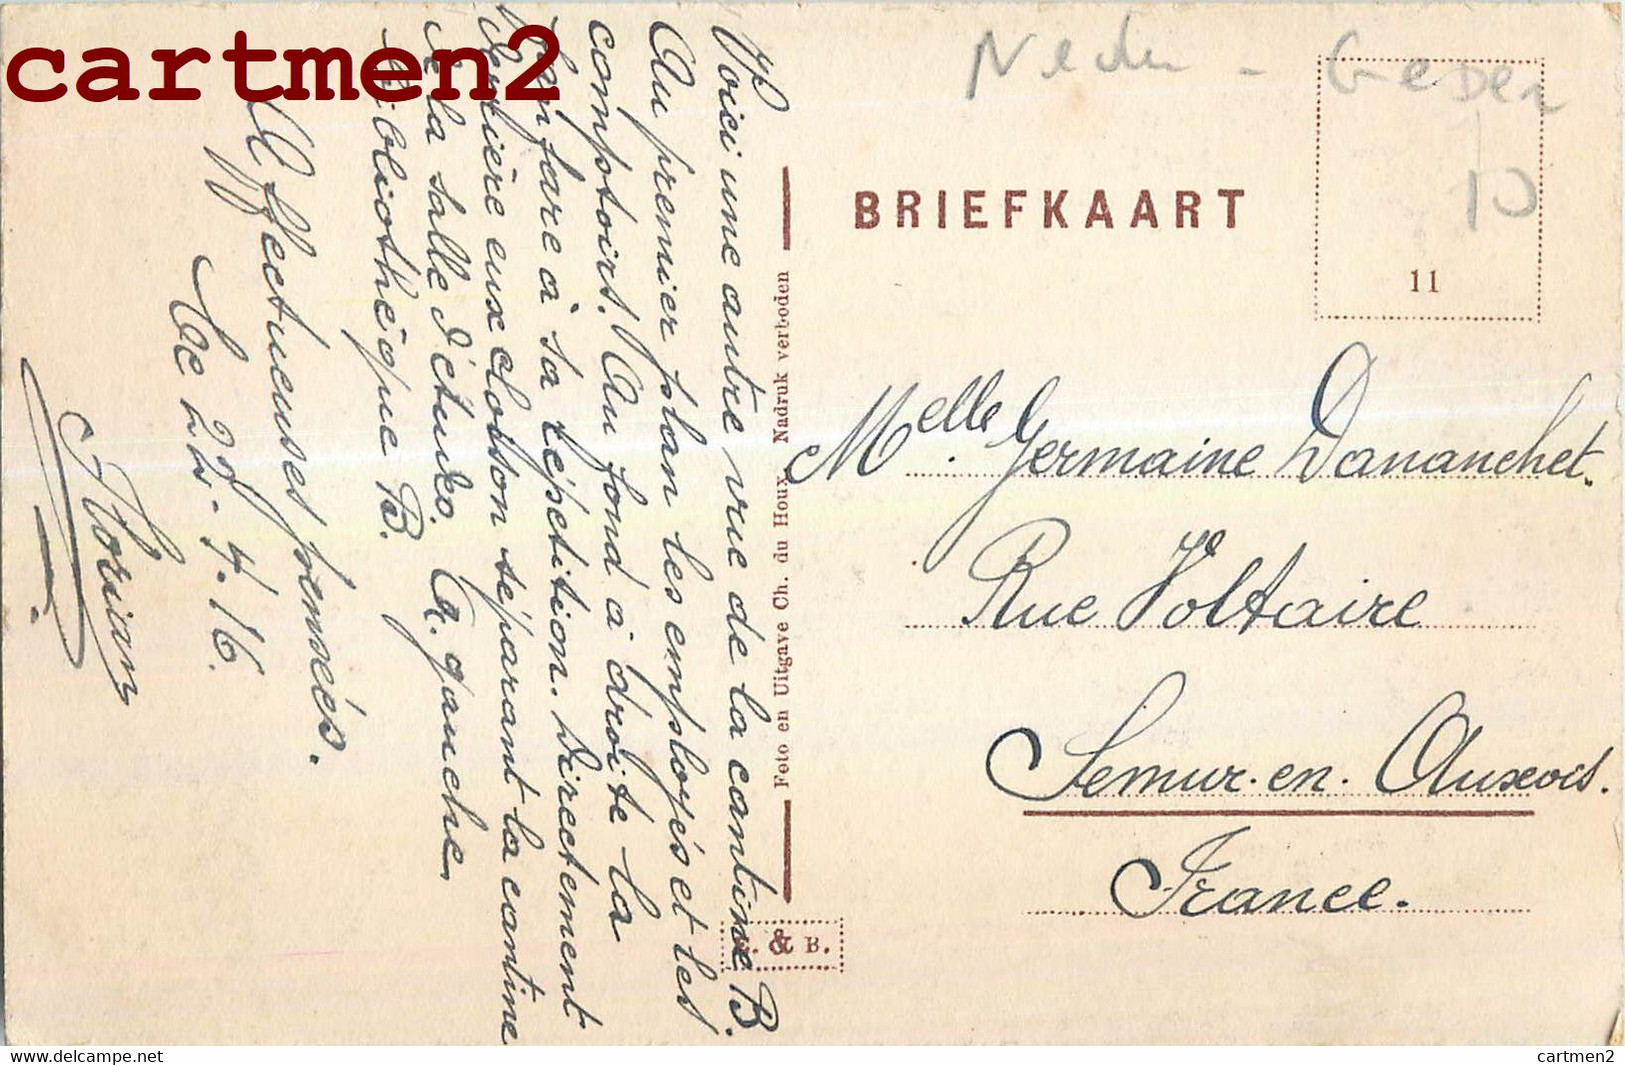 cartmen2
Voici une autre vue de la cantine B.
Au premier plan les employés et les
comptoirs. Au fond à droite la
fanfare à sa répétition. Directement
derrière eux cloison séparant la cantine
de la salle d'études. Ça gauche
bibliothèque B.
Affectueuses pensées.
Ce 22.4.16.
Florian
Foto en Uitgave Ch. du Houx. Nadruk verboden
& B.
BRIEFKAART
11
10
Melle Germaine Dananchet.
Rue Voltaire
Semur-en-Auxois.
France.
cartmen2